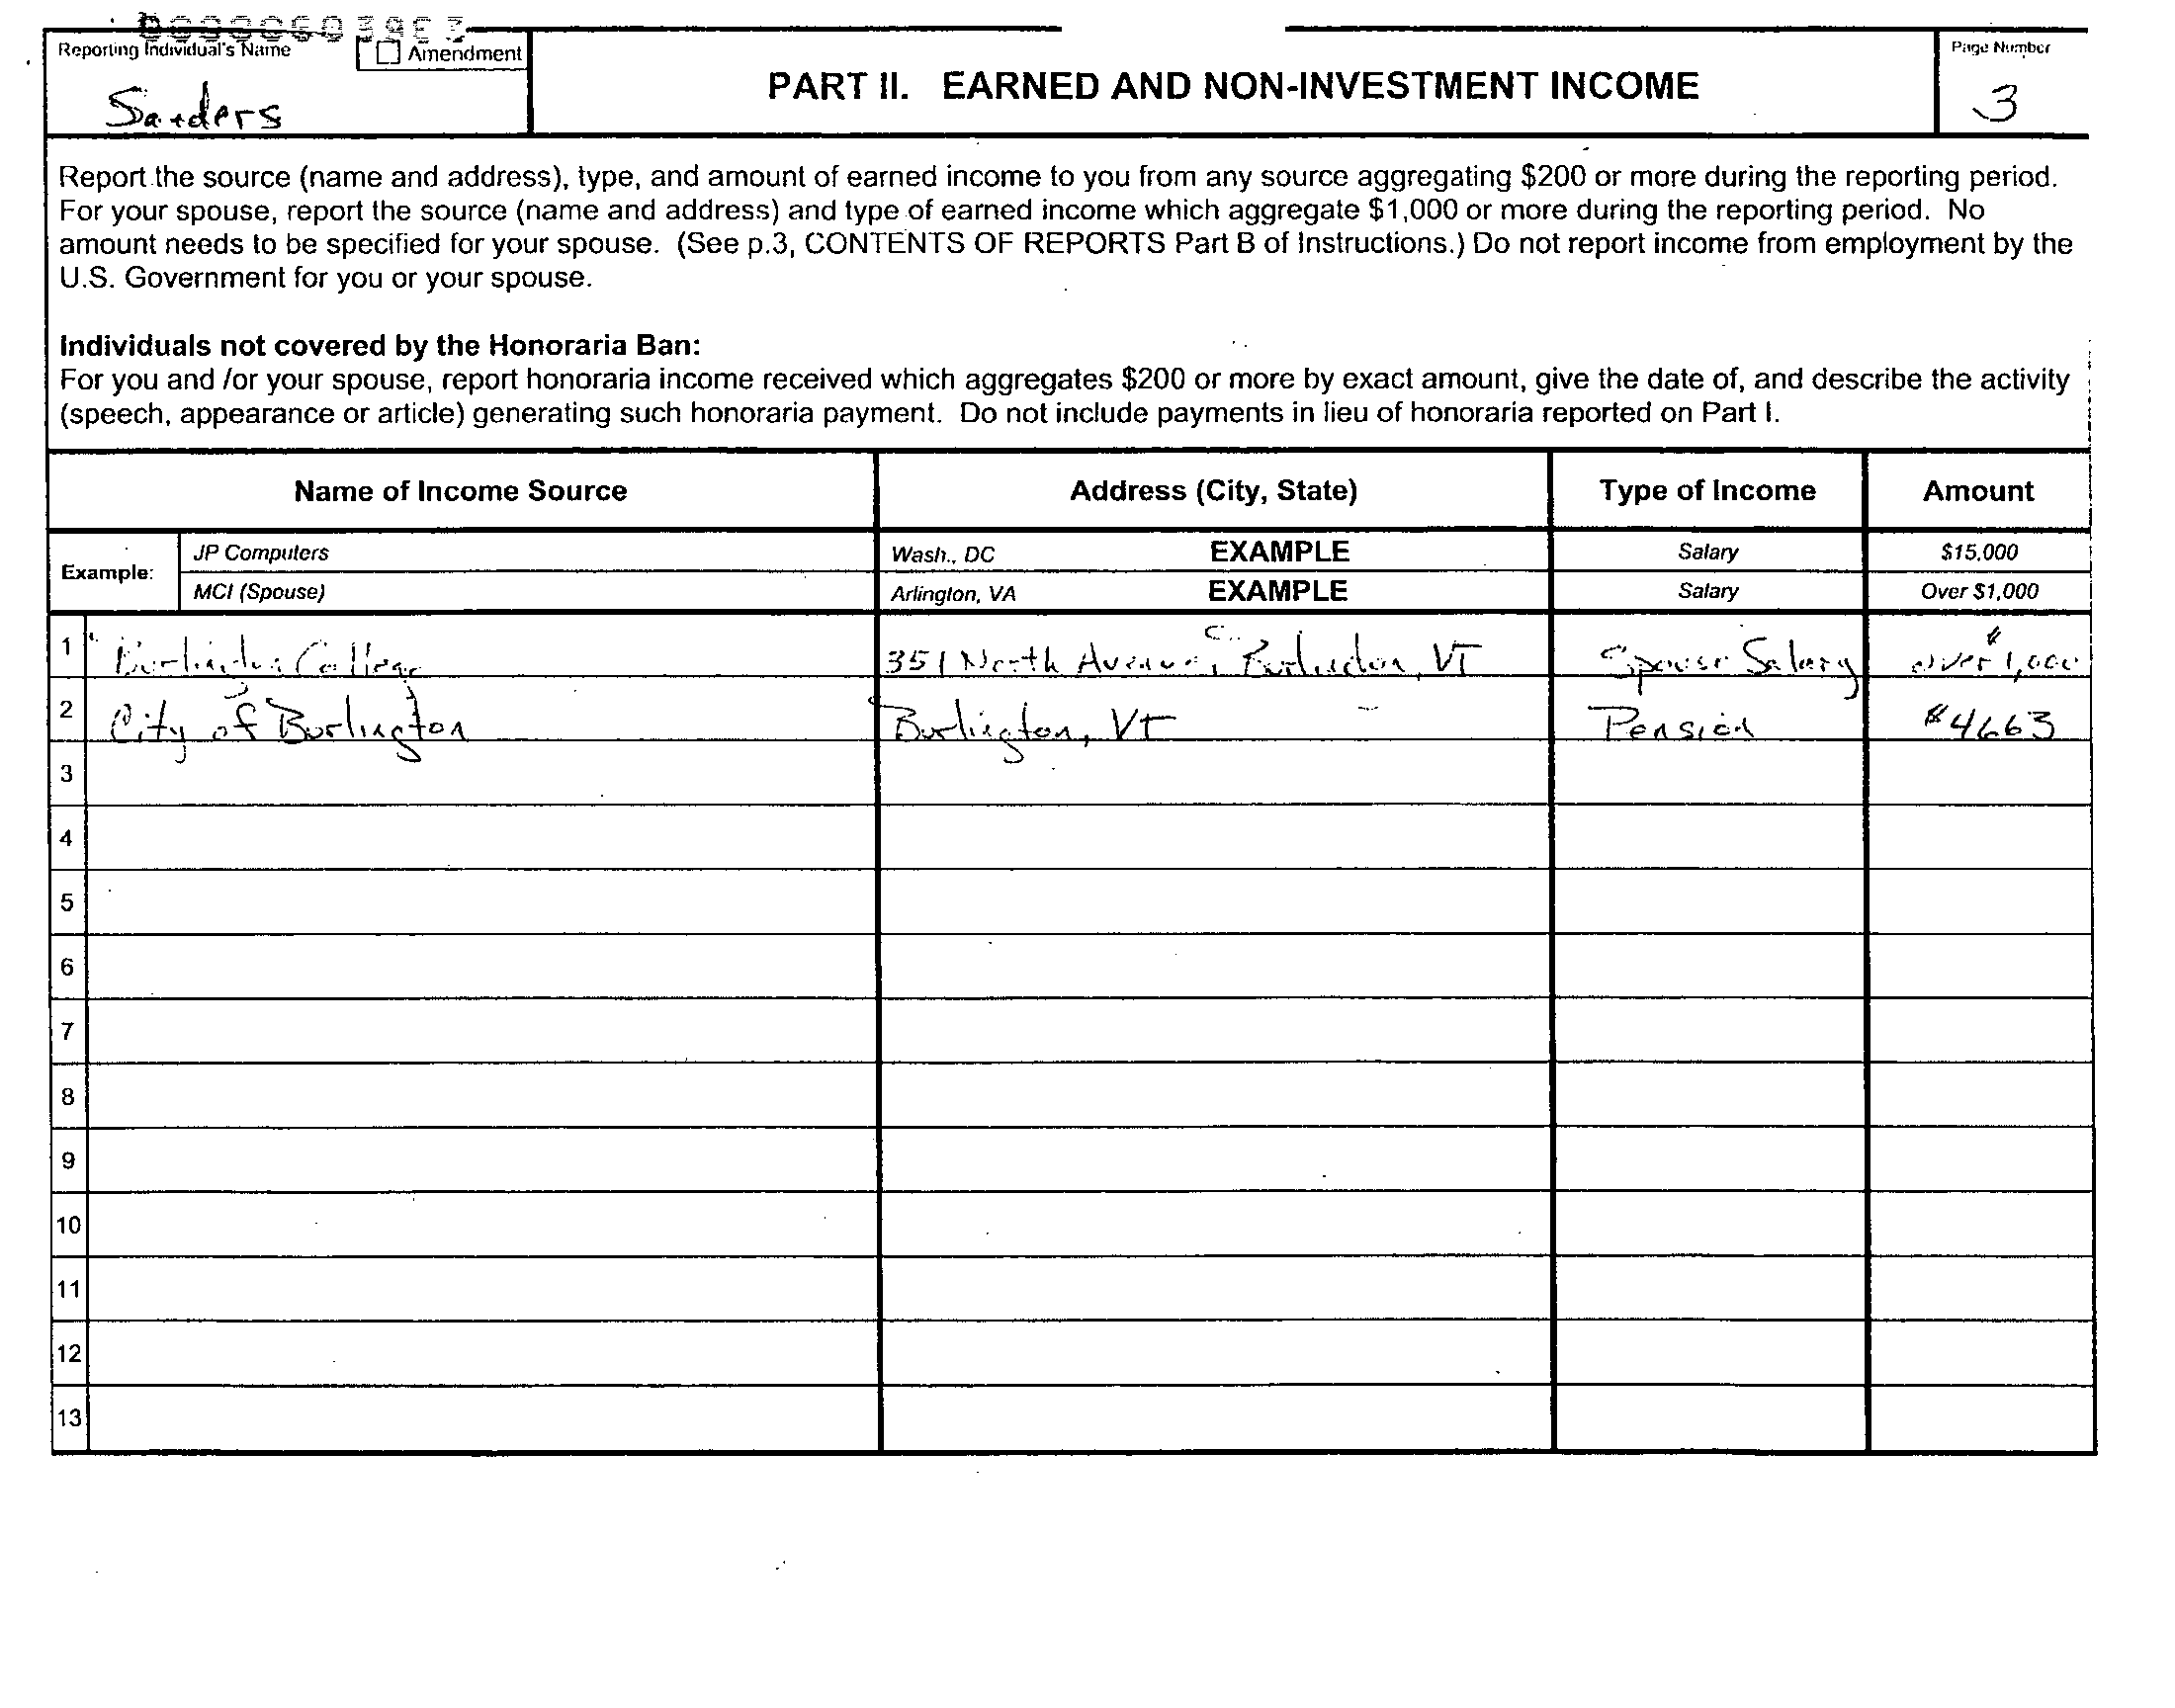 Reporting Individual's Name
Amendment
Sanders
PART II. EARNED AND NON-INVESTMENT INCOME
Page Number
3
Report the source (name and address), type, and amount of earned income to you from any source aggregating $200 or more during the reporting period.
For your spouse, report the source (name and address) and type of earned income which aggregate $1,000 or more during the reporting period. No
amount needs to be specified for your spouse. (See p.3, CONTENTS OF REPORTS Part B of Instructions.) Do not report income from employment by the
U.S. Government for you or your spouse.
Individuals not covered by the Honoraria Ban:
For you and /or your spouse, report honoraria income received which aggregates $200 or more by exact amount, give the date of, and describe the activity
(speech, appearance or article) generating such honoraria payment. Do not include payments in lieu of honoraria reported on Part I.
Name of Income Source Address (City, State) Type of Income Amount
Example: JP Computers Wash., DC EXAMPLE Salary $15,000
MCI (Spouse) Arlington, VA EXAMPLE Salary Over $1,000
1 Burlington College 351 North Avenue, Burlington, VT Spouse Salary over $1,000
2 City of Burlington Burlington, VT Pension $4663
3
4
5
6
7
8
9
10
11
12
13